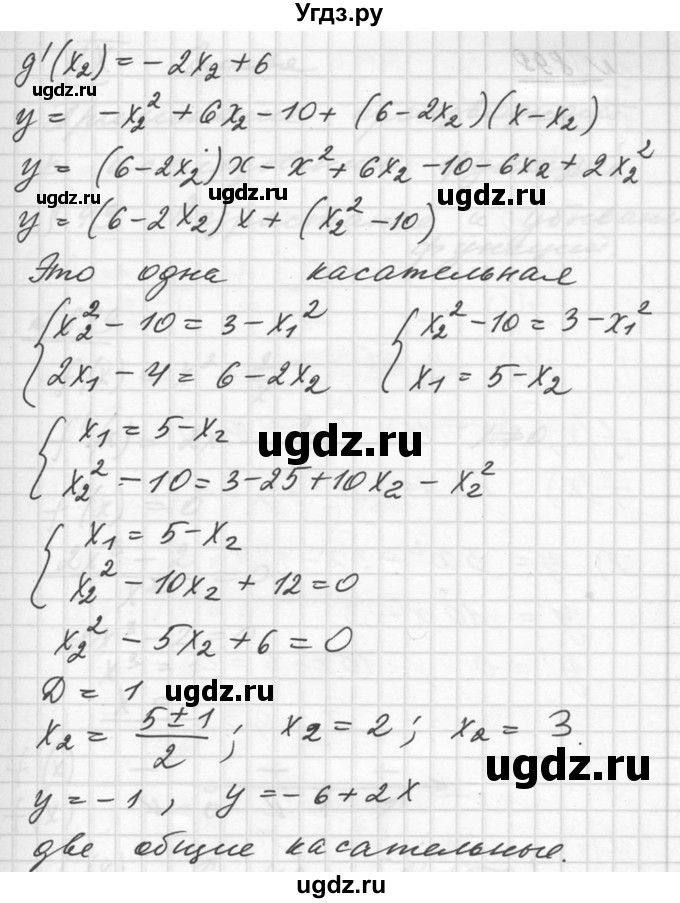 Угдз.ру
g'(x₂) = -2x₂ + 6
y = -x₂² + 6x₂ - 10 + (6 - 2x₂)(x - x₂)
y = (6 - 2x₂)x - x² + 6x₂ - 10 - 6x₂ + 2x₂²
ugdz.ru ugdz.ru
y = (6 - 2x₂)x + (x₂² - 10)
Это одна касательная
{ x₂² - 10 = 3 - x₁² { x₂² - 10 = 3 - x₁²
2x₁ - 4 = 6 - 2x₂ x₁ = 5 - x₂
{ x₁ = 5 - x₂
ugdz.ru
x₂² - 10 = 3 - 25 + 10x₂ - x₂²
{ x₁ = 5 - x₂
x₂² - 10x₂ + 12 = 0
x₂² - 5x₂ + 6 = 0
D = 1 ugdz.ru
x₂ = (5 ± 1)/2; x₂ = 2; x₂ = 3.
ugdz.ru
y = -1, y = -6 + 2x
две общие касательные.
ugdz.ru